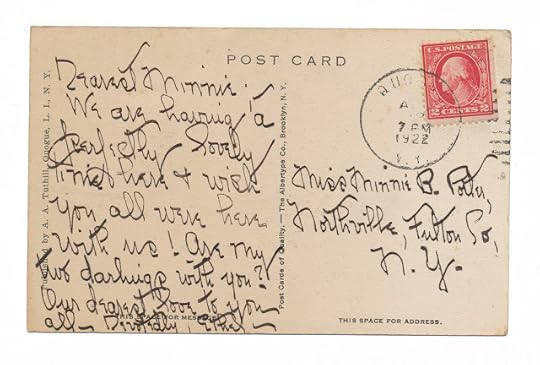 POST CARD
Dearest Minnie:
We are having a
perfectly lovely
time here & wish
you all were here
with us! Are my
two darlings with you?
Our dearest love to you
all — Devotedly, Ethel —
THIS SPACE FOR MESSAGE
Published by A. A. Tuthill, Quogue, L. I., N. Y.
Post Cards of Quality. — The Albertype Co., Brooklyn, N. Y.
U.S. POSTAGE
2 CENTS 2
7 PM
1922
N.Y.
Miss Minnie B.
Northville, Fulton Co,
N. Y.
THIS SPACE FOR ADDRESS.